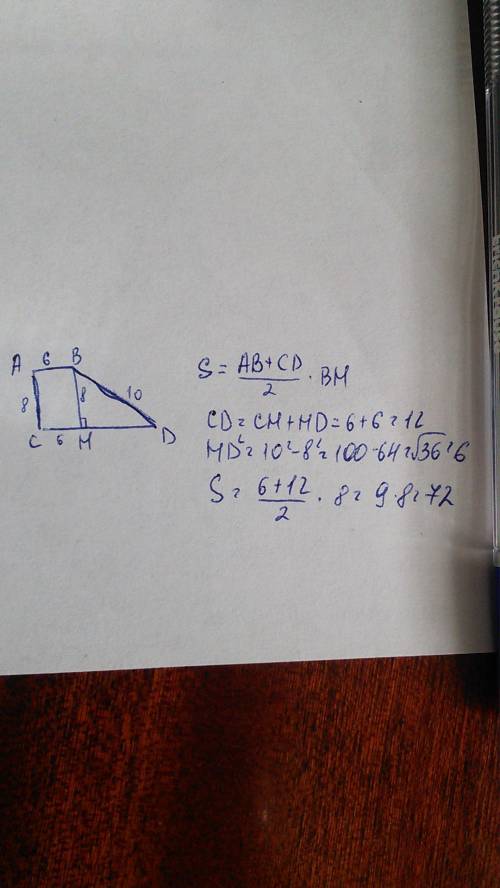 A 6 B
8 8 10
C 6 H D
S = AB+CD/2 · BH
CD = CH+HD = 6+6 = 12
HD² = 10²-8² = 100-64 = √36 = 6
S = 6+12/2 · 8 = 9·8 = 72